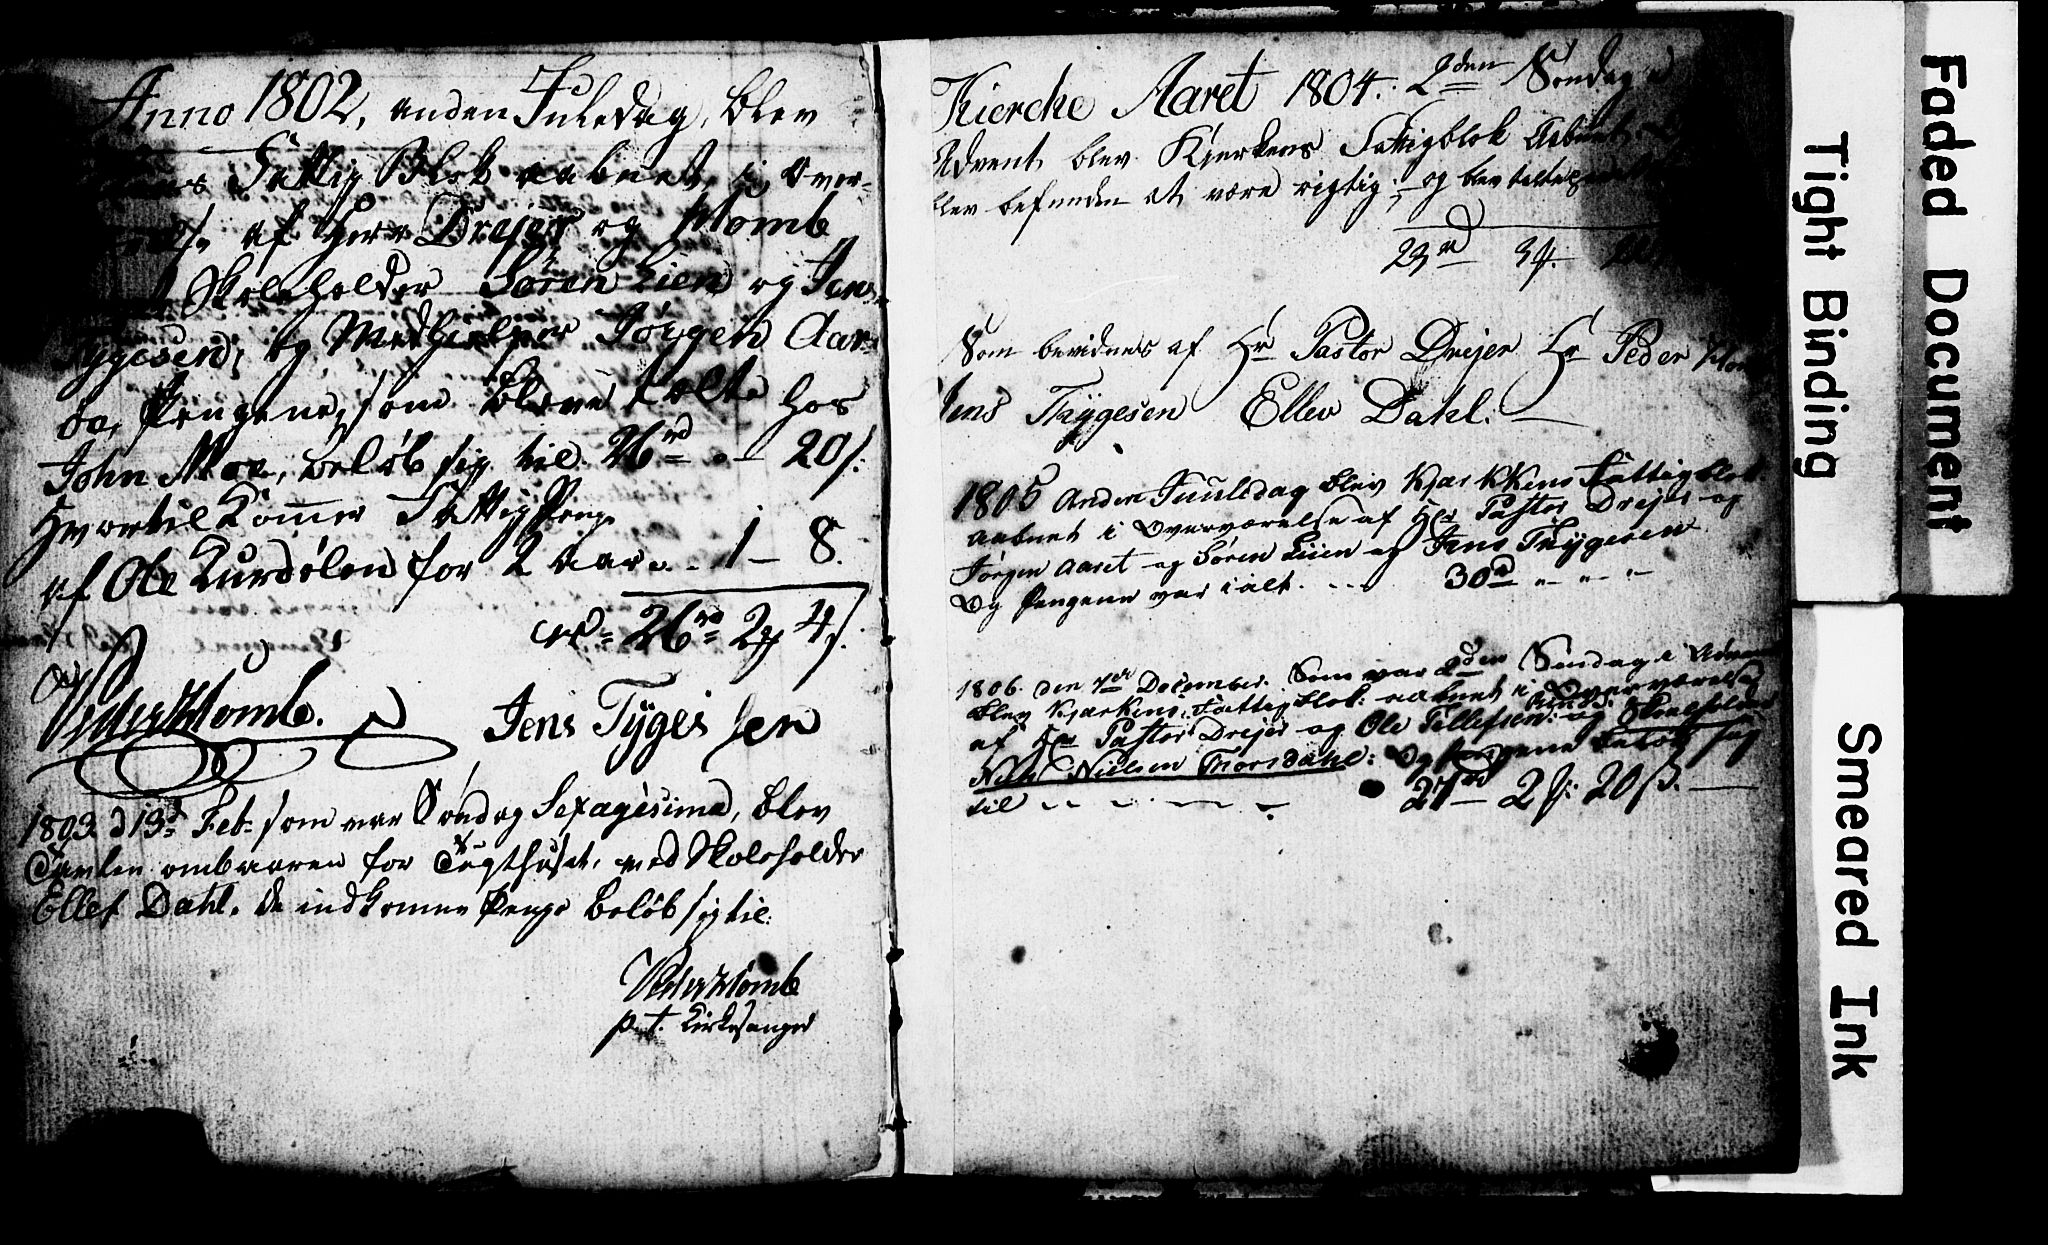 Anno 1802, anden Juledag, blev
Fattig Blok aabnet, i Over-
af Herr Drejer og Klomb
Skoleholder Søren Lien og Jens
Tygesen, og Medhielper Jørgen Aar-
Pengene, som bleve talte hos
John Moe, beløb sig til 26 rd " - 20 s.
Hvortil Kom̅er Fattig Penge
af Ole Kurdølen for 2 Aar .. 1 - 8.
26 rd 2 4 s.
Peder Klomb. Jens Tygessen
1803 d 13d Feb. som var Søndag Sexagesima, blev
Tavlen ombaaren for Tugthuset, ved Skoleholder
Ellef Dahl. de indkomne Penge beløb sig til:
Peder Klomb
p. t. Kirkesanger
Kierche Aaret 1804. 2den Søndag
Advent blev Kierkens Fattigblok Aabnet
blev befunden at være rigtig; og blev talte
23 rd 3
Som bevidnes af Hr Pastor Drejer Hr Peder Klomb
Jens Thygesen Ellev Dahl. —
1805 Anden Juuledag blev KjærKKens Fattigblok
aabnet i Overværelse af Her Pastor Drejer og
Jørgen Aaret og Søren Liien og Jens Thygesen
Og Pengene var i alt. . . . 30 rd " - " - " -
1806. den 7de December. Som var 2den Søndag i Advent
blev KjærKens Fattigblok: aabnet i Overværelse
af Her Pastor Drejer og Ole Tellefsen: og Skoleholder
Niels Nielsen Thorsdahl: Og Pengene beløb sig
til 27 rd 2 20 ß. —
Faded Document
Tight Binding
Smeared Ink